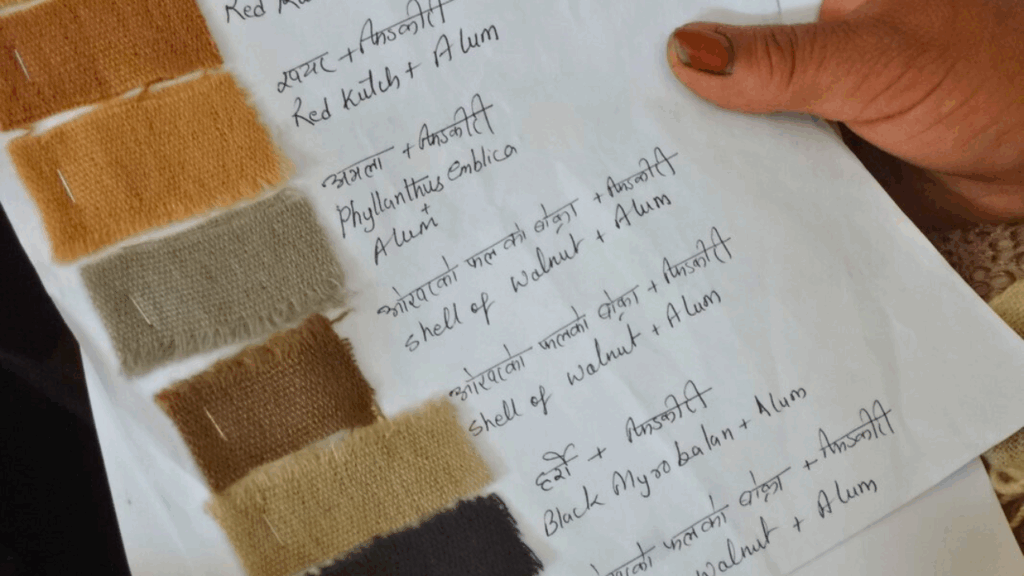 Red
खयर + फिटकीरी
Red Kutch + Alum
अमला + फिटकीरी
Phyllanthus Emblica
+
Alum
ओखरको फल को बोक्रा + फिटकीरी
shell of walnut + Alum
ओखरको फलको बोक्रा + फिटकीरी
shell of walnut + Alum
हर्रो + फिटकीरी
Black Myrobalan + Alum
फलको बोक्रा + फिटकीरी
walnut + Alum